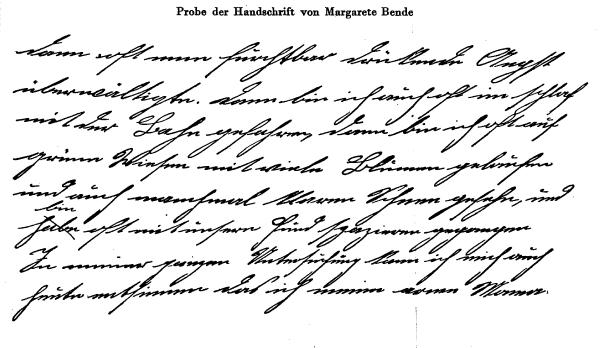 Probe der Handschrift von Margarete Bende
dann oft nun furchtbar drückende Angst
überwältigte. dann bin ich auch oft im schlaf
mit der Bahn gefahren, dann bin ich oft auf
grünen Wiesen mit viele Blumen gelaufen
und auch manchmal klaren Schnee gesehn, und
bin
habe oft mit unsern Hund spazieren gegangen
In meiner ganzen Untersuchung kann ich mich auch
heute entsinnen das ich meine armen Mama.